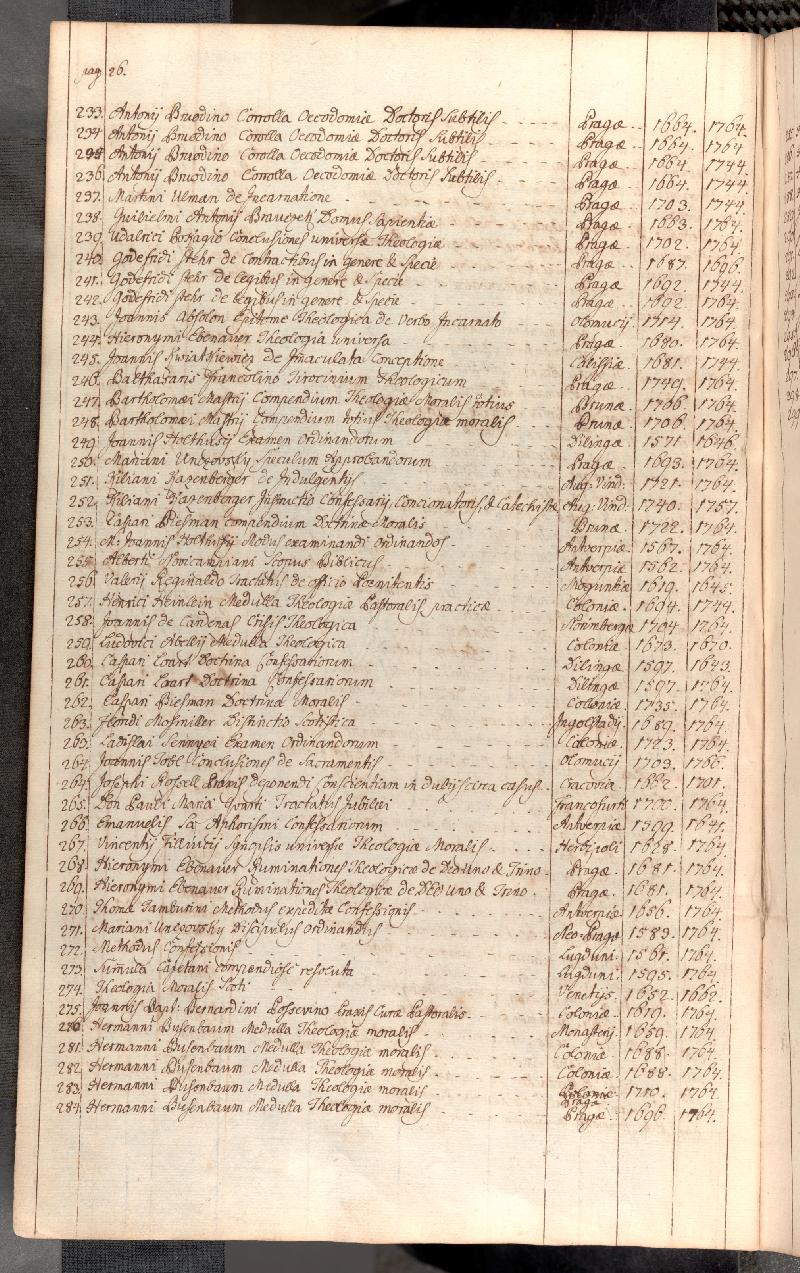 pag 26.
233. Antonij Bruodino Corrolla Oecodomiæ Doctoris Subtilis - - - - Pragæ. - 1664. 1764.
234 Antonij Bruodino Corolla Oecodomiæ Doctoris Subtilis - - - - Pragæ. - 1664. 1764
235 Antonij Bruodino Corolla Oecodomiæ Doctoris Subtilis - - - - Pragæ. 1664 1744.
236. Antonij Bruodino Corolla Oecodomiæ Doctoris Subtilis - - - - Pragæ. 1664. 1744.
237. Martini Ulman de Incarnatione - - - - Pragæ. 1703. 1744
238. Guilielmi Antonij Domus Sapientiæ - - - - Pragæ. 1683. 1764.
239. Udalrici Conclusiones universæ Theologiæ - - - - Pragæ. 1702. 1764
240. Godefridi Stehr de Contractibus in genere & Specie - - - Pragæ. 1687. 1696.
241. Godefridi Stehr de legibus in genere & Specie - - - - Pragæ. 1692. 1744.
242. Godefridi Stehr de legibus in genere & Specie - - - - Pragæ. 1692 1764.
243. Joannis Absolon Epitome Theologica de Verbo Incarnato - - - Olomucij. 1714. 1764.
244. Hieronymi Ebenauer Theologia universa - - - - Pragæ. 1680. 1764.
245. Joannis Kwiatkiewicz de Jmaculata Conceptione - - - - 1681. 1744.
246. Balthasaris Francolino Tirocinium Theologicum - - - - Pragæ. 1749. 1764.
247. Bartholomæi Mastrij Compendium Theologiæ Moralis totius - - - Brunæ. 1706. 1764.
248. Bartholomæi Mastrij Compendium totius Theologiæ moralis - - - Brunæ 1706. 1764.
249. Joannis Holthusij Examen Ordinandorum - - - - Dilingæ. 1571 1646.
250. Mariani Speculum Approbandorum - - - - Pragæ. 1693. 1764.
251. Kiliani Kazenberger de Indulgentijs - - - - Aug: Vind: 1721. 1764.
252. Kiliani Kazenberger Instructio Confessarij, Concionatoris, & Catechistæ Aug: Vind: 1740. 1757.
253. Caspari Biesman Compendium Doctrinæ Moralis - - - - Brunæ. 1722. 1764.
254. M: Joannis Holthusij Modus examinandi Ordinandos - - - - Antverpiæ. 1567. 1764.
255. Alberti Novicampiani Scopus Biblicus - - - - Antverpiæ 1562. 1764.
256. Valerij Reginaldo Tractatus de officio Pœnitentis - - - - Moguntiæ 1619. 1645.
257. Henrici Heinlein Medulla Theologiæ Pastoralis practicæ - - - Coloniæ. 1694. 1744.
258. Joannis de Cardenas Crisis Theologica - - - - Nörinbergæ 1704 1764.
259. Ludovici Abellij Medulla Theologica - - - - Coloniæ 1673. 1670.
260. Caspari Loart Doctrina Confessariorum - - - - Dilingæ 1597. 1643.
261. Caspari Loart Doctrina Confessariorum - - - - Dilingæ 1597. 1764.
262. Caspari Biesman Doctrina Moralis - - - - Coloniæ 1735. 1764.
263. Floridi Mosmiller Distinctio Scotistica - - - - Ingolstadij. 1689. 1764
265. Ladislai Sennyei Examen Ordinandorum - - - - Coloniæ. 1723. 1764.
264. Joannis Tobl Conclusiones de Sacramentis - - - - Olomucij 1703. 1766.
264. Josephi Rossell Praxis deponendi Conscientiam in dubijs circa casus. - Cracoviæ 1662. 1701.
265. Don Pauli Maria Quarti Tractatus Jubilæi - - - - Francofurti 1700. 1764.
266. Emanuelis Sa Aphorismi Confessariorum - - - - Antverpiæ 1599. 1641.
267. Vincentij Filiucij Synopsis universæ Theologiæ Moralis - - - Herbipoli 1628. 1764.
268. Hieronymi Ebenauer Ruminationes Theologicæ de Deo Uno & Trino - Pragæ. 1681. 1764.
269. Hieronymi Ebenauer Ruminationes Theologicæ de Deo Uno & Trino - Pragæ. 1681. 1764.
270. Thomæ Tamburini Methodus expeditæ Confessionis - - - - Antverpiæ 1656. 1764.
271. Mariani Discipulus Ordinandus - - - - Neo-Pragæ 1589. 1764.
272. Methodus Confessionis - - - - Lugduni. 1561. 1764.
273. Sumula Cajetani compendiose resoluta - - - - Lugduni. 1595. 1764
274. Theologia Moralis Scoti - - - - Venetijs. 1652. 1662.
275. Joannis Bapt: Bernardini Possevino Praxis Curæ Pastoralis - - - Coloniæ. 1619. 1764.
276. Hermanni Busenbaum Medulla Theologiæ moralis - - - - Monasterij 1659. 1764
281. Hermanni Busenbaum Medulla Theologiæ moralis - - - - Coloniæ 1688. 1764.
282. Hermanni Busenbaum Medulla Theologiæ moralis - - - - Coloniæ 1688. 1764.
283. Hermanni Busenbaum Medulla Theologiæ moralis - - - - Coloniæ Pragæ 1710. 1764.
284. Hermanni Busenbaum Medulla Theologiæ moralis - - - - Pragæ. 1696. 1764.